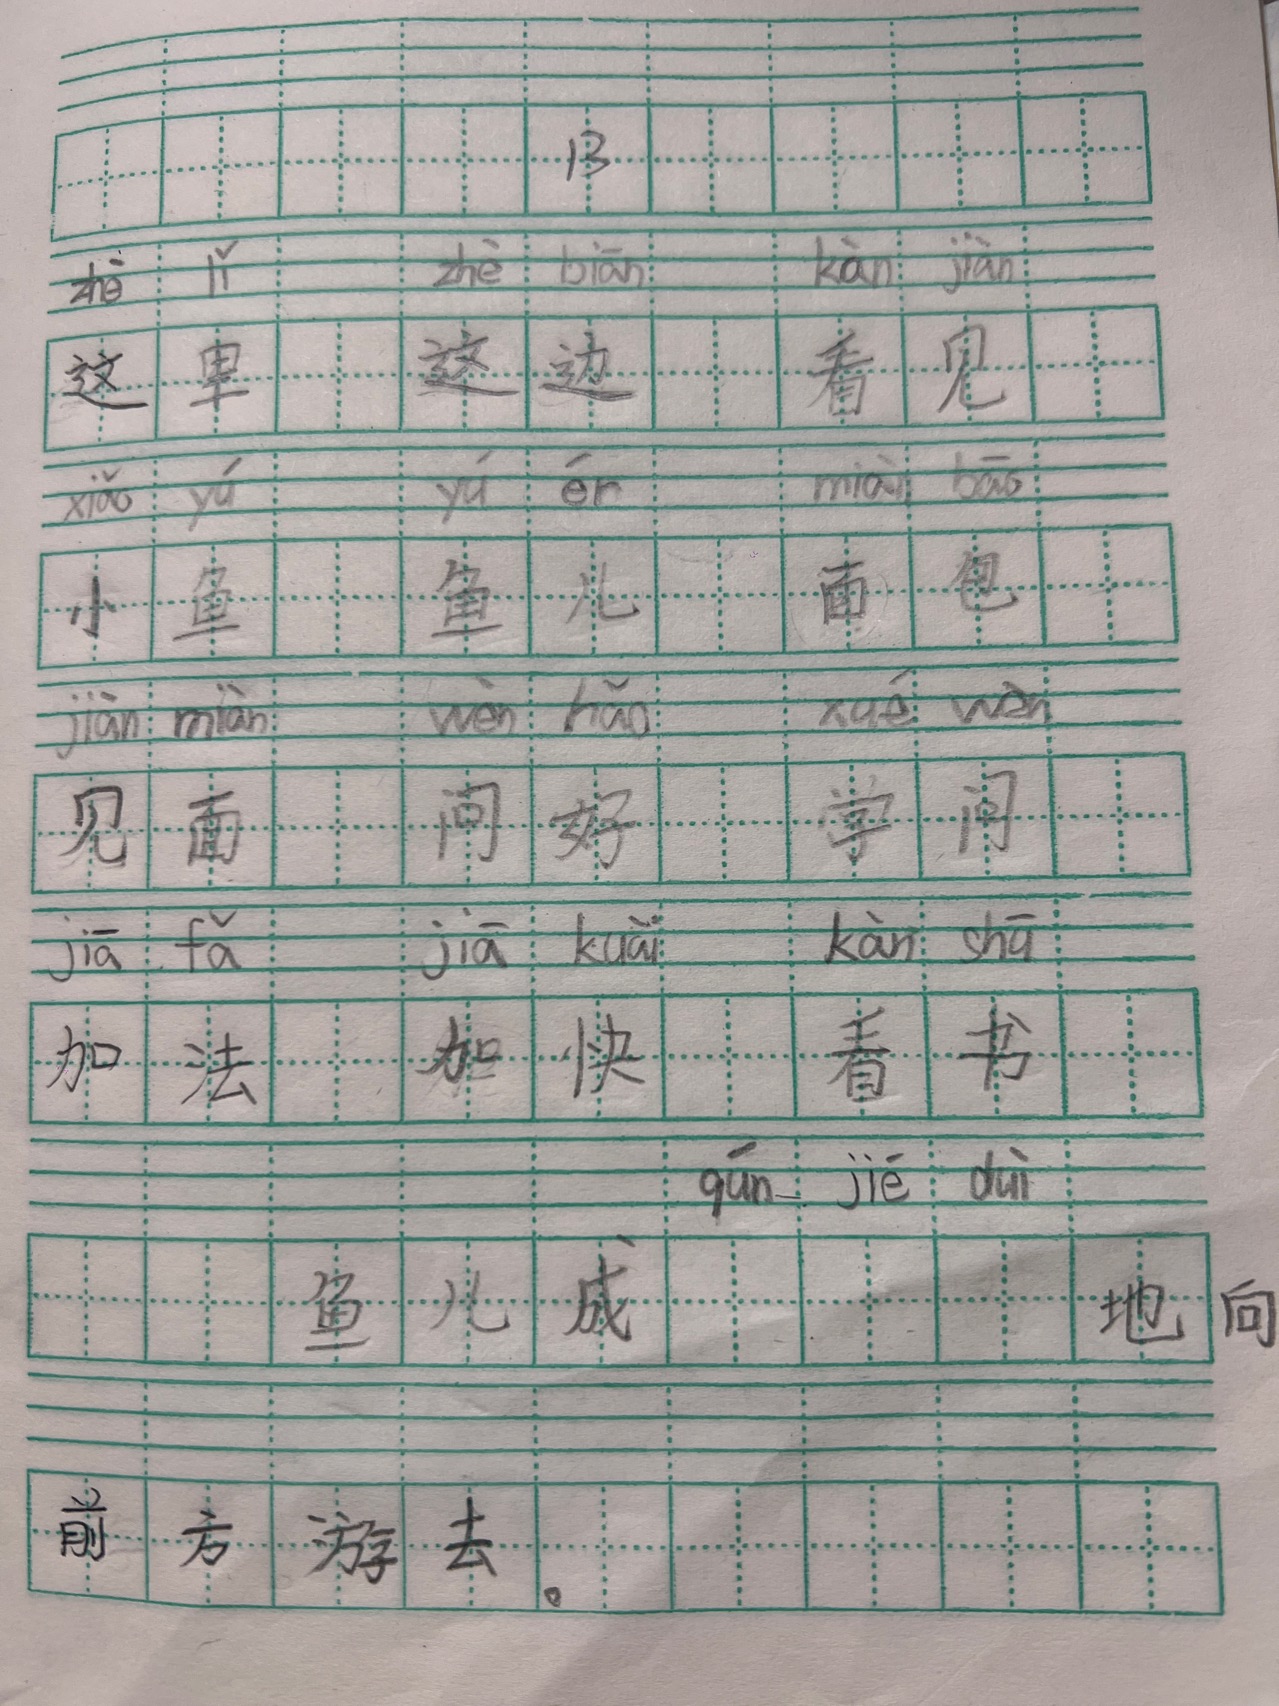 13
zhè lǐ zhè biān kàn jiàn
这里 这边 看见
xiǎo yú yú ér miàn bāo
小鱼 鱼儿 面包
jiàn miàn wèn hǎo xué wèn
见面 问好 学问
jiā fǎ jiā kuài kàn shū
加法 加快 看书
qún jié duì
鱼儿成 地向
前方游去。